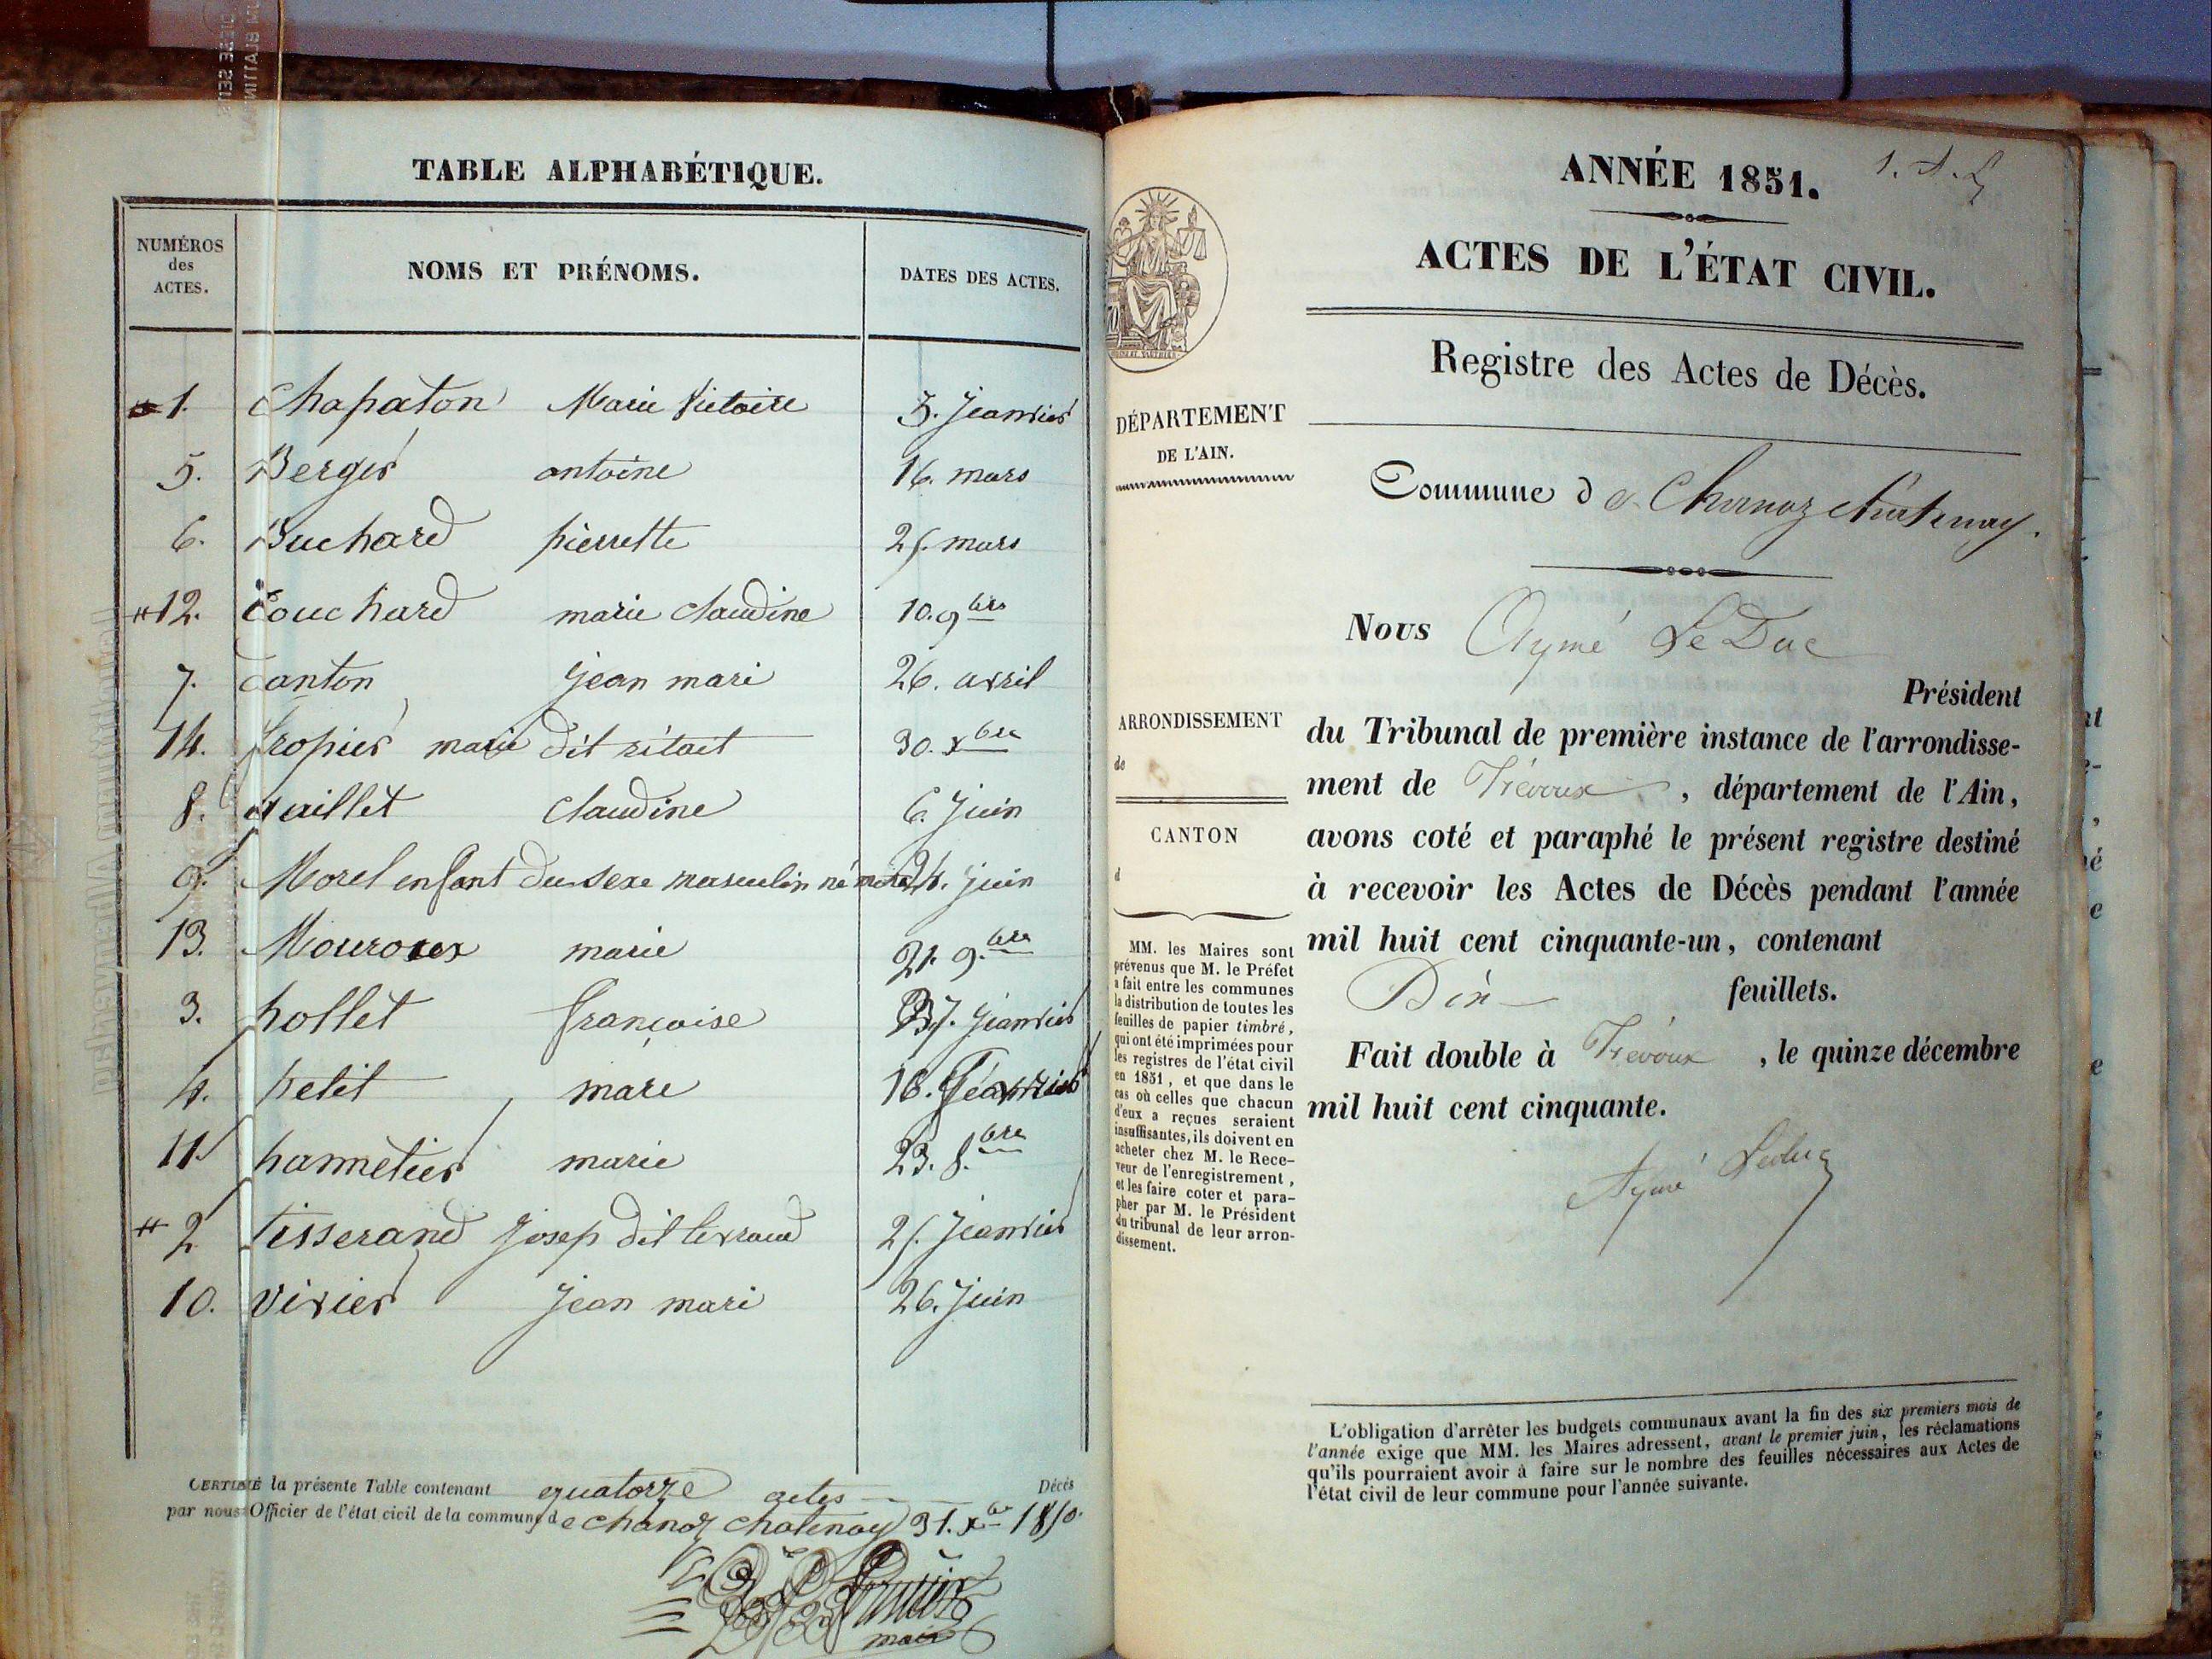 TABLE ALPHABÉTIQUE.
NUMÉROS
des
ACTES.
NOMS ET PRÉNOMS.
DATES DES ACTES.
1. Chapaton Marie Victoire 5. Jeanvier
5. Berger antoine 16. mars
6. Buchard pierrette 25. mars
12. Couchard marie claudine 10. 9bre
7. Canton jean mari 26. avril
14. fropier marie dit ritait 30. xbre
8. Gaillet claudine 6. Juin
9. Morel enfant du sexe masculin né mort 24. Juin
13. Mouroux marie 21. 9.bre
3. pollet françoise 27. jeanvier
4. petit marie 18. Jeanvier
11. pannetier marie 23. 8.bre
2 tisserand josep dit terraud 25. Jeanvier
10. vivier Jean mari 26. Juin
CERTIFIÉ la présente Table contenant quatorze actes Décès
par nous Officier de l'état civil de la commune de chanoz chatenay 31. xbre 1850.
maire
ANNÉE 1851.
1. A. L
ACTES DE L'ÉTAT CIVIL.
Registre des Actes de Décès.
DÉPARTEMENT
DE L'AIN.
Commune de Chanoz chatenay.
Nous Aymé Le Duc
Président
ARRONDISSEMENT
de
du Tribunal de première instance de l'arrondisse-
ment de Trévoux, département de l'Ain,
CANTON
d
avons coté et paraphé le présent registre destiné
à recevoir les Actes de Décès pendant l'année
mil huit cent cinquante-un, contenant
Dix feuillets.
Fait double à Trévoux, le quinze décembre
mil huit cent cinquante.
Aymé Leduc
MM. les Maires sont
prévenus que M. le Préfet
a fait entre les communes
la distribution de toutes les
feuilles de papier timbré,
qui ont été imprimées pour
les registres de l'état civil
en 1851, et que dans le
cas où celles que chacun
d'eux a reçues seraient
insuffisantes, ils doivent en
acheter chez M. le Rece-
veur de l'enregistrement,
et les faire coter et para-
pher par M. le Président
du tribunal de leur arron-
dissement.
L'obligation d'arrêter les budgets communaux avant la fin des six premiers mois de
l'année exige que MM. les Maires adressent, avant le premier juin, les réclamations
qu'ils pourraient avoir à faire sur le nombre des feuilles nécessaires aux Actes de
l'état civil de leur commune pour l'année suivante.